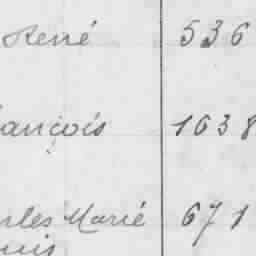 René 536
ançois 1638
rles Marie 671
uis